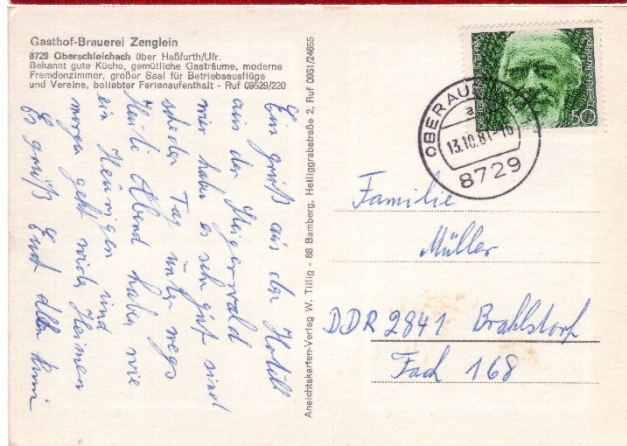 Gasthof-Brauerei Zenglein
8729 Oberschleichach über Haßfurth/Ufr.
Bekannt gute Küche, gemütliche Gasträume, moderne
Fremdenzimmer, großer Saal für Betriebsausflüge
und Vereine, beliebter Ferienaufenthalt - Ruf 09529/220
Ein gruß aus der
aus den Steigerwald
wir haben es sehr gut sind
jeden Tag unter wegs
Heute Abend haben wir
ein Heurigen und
morgen geht wieder Heimen
Es grüßt Euch allen
Ansichtskarten-Verlag W. Tillig - 86 Bamberg, Heiliggrabstraße 2, Ruf 0951/24655
13.10.81-16
8729
50
Familie
Müller
DDR 2841 Brahlstorf
Fach 168